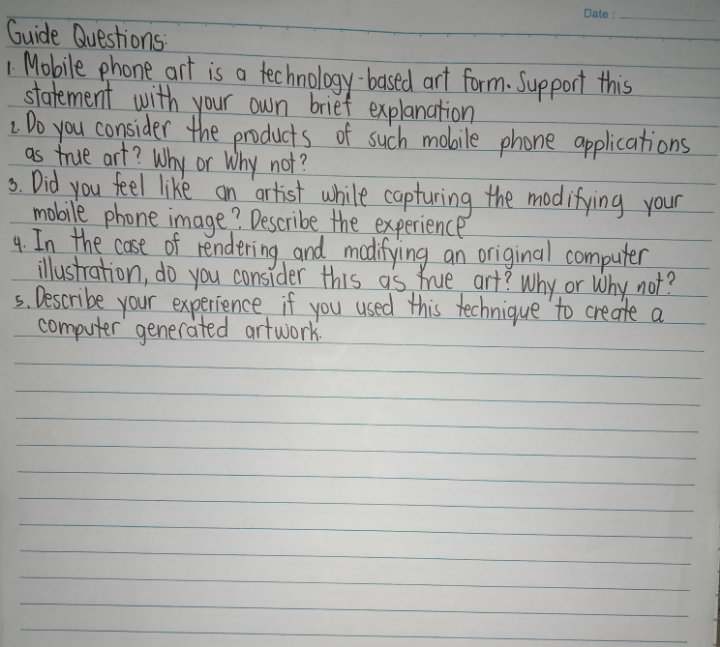 Date:
Guide Questions:
1. Mobile phone art is a technology-based art form. Support this
statement with your own brief explanation
2. Do you consider the products of such mobile phone applications
as true art? Why or Why not?
3. Did you feel like an artist while capturing the modifying your
mobile phone image? Describe the experience
4. In the case of rendering and modifying an original computer
illustration, do you consider this as true art? Why or Why not?
5. Describe your experience if you used this technique to create a
computer generated artwork.